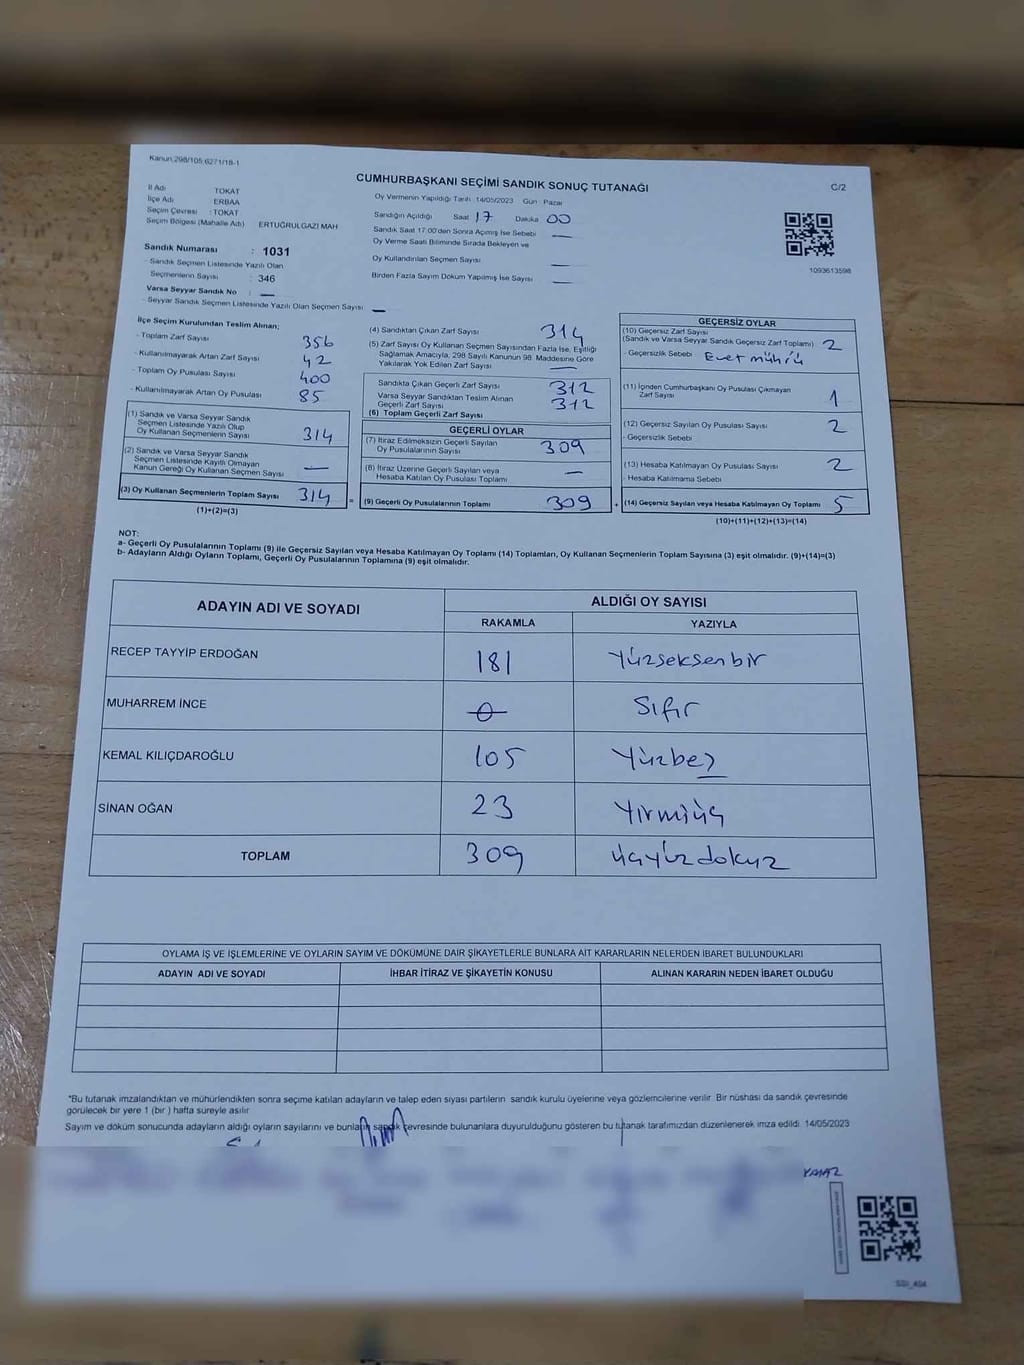 Kanun:298/105;6271/18-1
CUMHURBAŞKANI SEÇİMİ SANDIK SONUÇ TUTANAĞI
C/2
İl Adı TOKAT
İlçe Adı ERBAA
Seçim Çevresi : TOKAT
Seçim Bölgesi (Mahalle Adı) ERTUĞRULGAZİ MAH
Sandık Numarası : 1031
- Sandık Seçmen Listesinde Yazılı Olan
Seçmenlerin Sayısı : 346
Varsa Seyyar Sandık No : —
- Seyyar Sandık Seçmen Listesinde Yazılı Olan Seçmen Sayısı —
Oy Vermenin Yapıldığı Tarih : 14/05/2023 Gün : Pazar
Sandığın Açıldığı Saat 17 Dakika 00
Sandık Saat 17:00'den Sonra Açımış İse Sebebi —
Oy Verme Saati Bitiminde Sırada Bekleyen ve
Oy Kullandırılan Seçmen Sayısı —
Birden Fazla Sayım Döküm Yapılmış İse Sayısı —
1093613598
İlçe Seçim Kurulundan Teslim Alınan;
- Toplam Zarf Sayısı 356
- Kullanılmayarak Artan Zarf Sayısı 42
- Toplam Oy Pusulası Sayısı 400
- Kullanılmayarak Artan Oy Pusulası 85
(1) Sandık ve Varsa Seyyar Sandık
Seçmen Listesinde Yazılı Olup
Oy Kullanan Seçmenlerin Sayısı 314
(2) Sandık ve Varsa Seyyar Sandık
Seçmen Listesinde Kayıtlı Olmayan
Kanun Gereği Oy Kullanan Seçmen Sayısı —
(3) Oy Kullanan Seçmenlerin Toplam Sayısı 314 =
(1)+(2)=(3)
(4) Sandıktan Çıkan Zarf Sayısı 314
(5) Zarf Sayısı Oy Kullanan Seçmen Sayısından Fazla İse, Eşitliği
Sağlamak Amacıyla, 298 Sayılı Kanunun 98. Maddesine Göre
Yakılarak Yok Edilen Zarf Sayısı —
Sandıkta Çıkan Geçerli Zarf Sayısı 312
Varsa Seyyar Sandıktan Teslim Alınan
Geçerli Zarf Sayısı 312
(6) Toplam Geçerli Zarf Sayısı
GEÇERLİ OYLAR
(7) İtiraz Edilmeksizin Geçerli Sayılan
Oy Pusulalarının Sayısı 309
(8) İtiraz Üzerine Geçerli Sayılan veya
Hesaba Katılan Oy Pusulası Toplamı —
(9) Geçerli Oy Pusulalarının Toplamı 309 +
GEÇERSİZ OYLAR
(10) Geçersiz Zarf Sayısı
(Sandık ve Varsa Seyyar Sandık Geçersiz Zarf Toplamı) 2
- Geçersizlik Sebebi Evet mühürlü
(11) İçinden Cumhurbaşkanı Oy Pusulası Çıkmayan
Zarf Sayısı 1
(12) Geçersiz Sayılan Oy Pusulası Sayısı 2
- Geçersizlik Sebebi
(13) Hesaba Katılmayan Oy Pusulası Sayısı 2
- Hesaba Katılmama Sebebi
(14) Geçersiz Sayılan veya Hesaba Katılmayan Oy Toplamı 5
(10)+(11)+(12)+(13)=(14)
NOT:
a- Geçerli Oy Pusulalarının Toplamı (9) ile Geçersiz Sayılan veya Hesaba Katılmayan Oy Toplamı (14) Toplamları, Oy Kullanan Seçmenlerin Toplam Sayısına (3) eşit olmalıdır. (9)+(14)=(3)
b- Adayların Aldığı Oyların Toplamı, Geçerli Oy Pusulalarının Toplamına (9) eşit olmalıdır.
ADAYIN ADI VE SOYADI
ALDIĞI OY SAYISI
RAKAMLA YAZIYLA
RECEP TAYYİP ERDOĞAN 181 Yüzseksenbir
MUHARREM İNCE 0 Sıfır
KEMAL KILIÇDAROĞLU 105 Yüzbeş
SİNAN OĞAN 23 Yirmiüç
TOPLAM 309 üçyüzdokuz
OYLAMA İŞ VE İŞLEMLERİNE VE OYLARIN SAYIM VE DÖKÜMÜNE DAİR ŞİKAYETLERLE BUNLARA AİT KARARLARIN NELERDEN İBARET BULUNDUKLARI
ADAYIN ADI VE SOYADI İHBAR İTİRAZ VE ŞİKAYETİN KONUSU ALINAN KARARIN NEDEN İBARET OLDUĞU
*Bu tutanak imzalandıktan ve mühürlendikten sonra seçime katılan adayların ve talep eden siyasi partilerin sandık kurulu üyelerine veya gözlemcilerine verilir. Bir nüshası da sandık çevresinde
görülecek bir yere 1 (bir ) hafta süreyle asılır
Sayım ve döküm sonucunda adayların aldığı oyların sayılarını ve bunların sandık çevresinde bulunanlara duyurulduğunu gösteren bu tutanak tarafımızdan düzenlenerek imza edildi. 14/05/2023